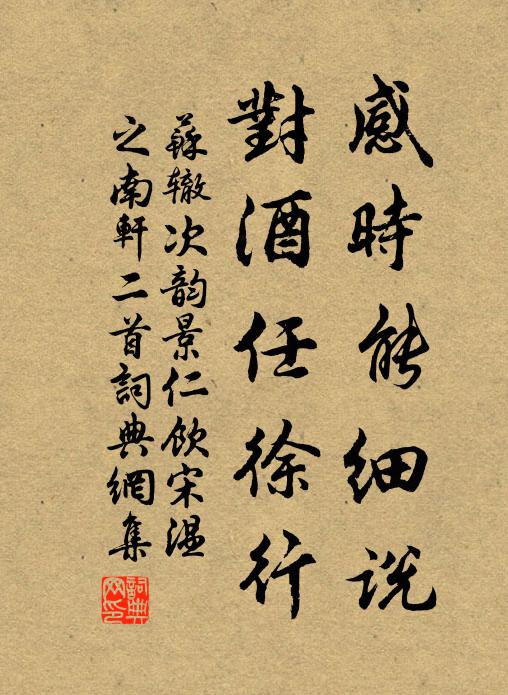 感時能細説
對酒任徐行
蘇辙次韵景仁飲宋温
之南軒二首詞典網集
詞典
网印